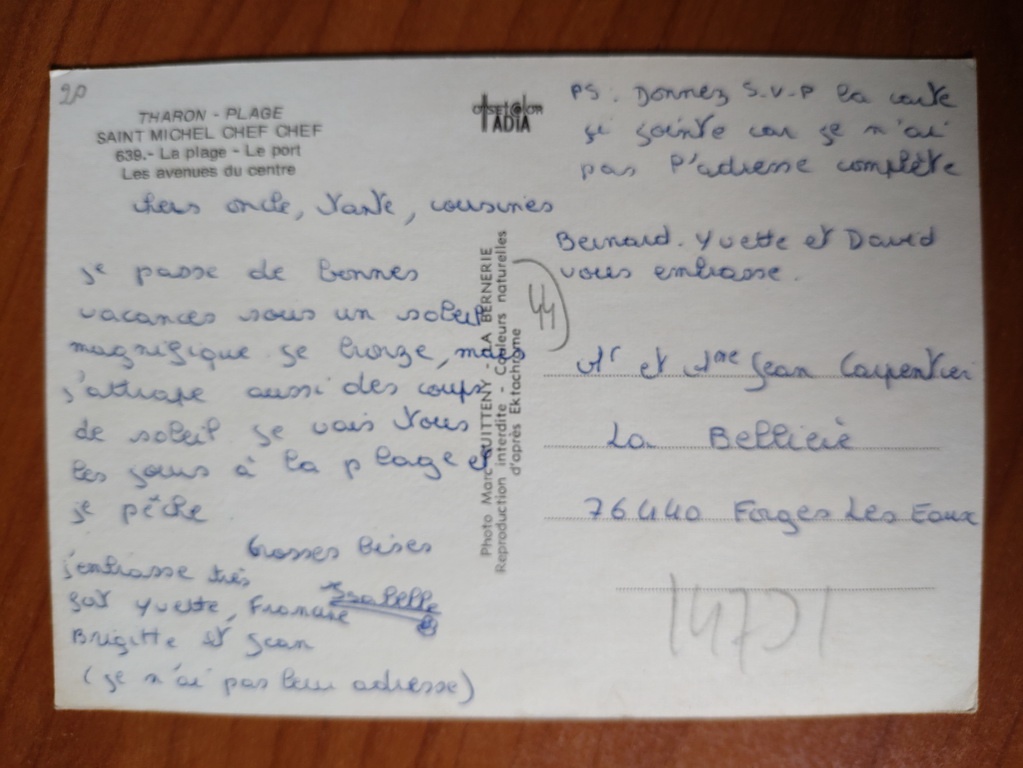 20
THARON - PLAGE
SAINT MICHEL CHEF CHEF
639.- La plage - Le port
Les avenues du centre
chers oncle, tante, cousines
je passe de bonnes
vacances sous un soleil
magnifique je bronze, mais
j'attrape aussi des coups
de soleil je vais tous
les jours à la plage et
je pêche
Grosses bises
Isabelle
j'embrasse très
fort Yvette, Francine
Brigitte et Jean
(je n'ai pas leur adresse)
ADIA
Photo Marc QUITTENY - LA BERNERIE
Reproduction interdite - Couleurs naturelles
d'après Ektachrome
44
PS. Donnez S.V.P la carte
si jointe car je n'ai
pas l'adresse complète
Bernard. Yvette et David
vous embrasse.
Mr et Mme Jean Carpentier
La Bellière
76440 Forges Les Eaux